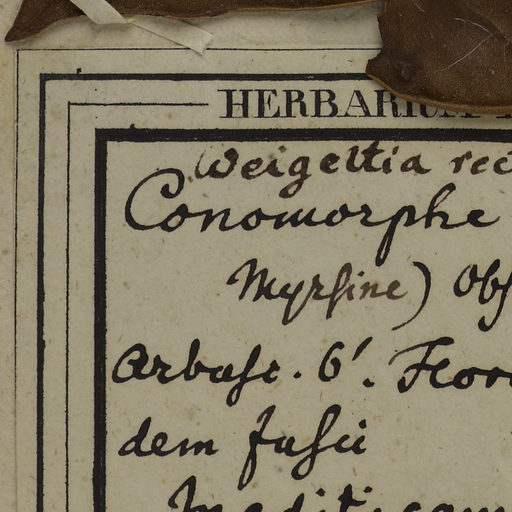 HERBARIUM
Weigeltia
Conomorphe
Myrsine) Obs
Arbusc. 6'. Flor
dem fusci